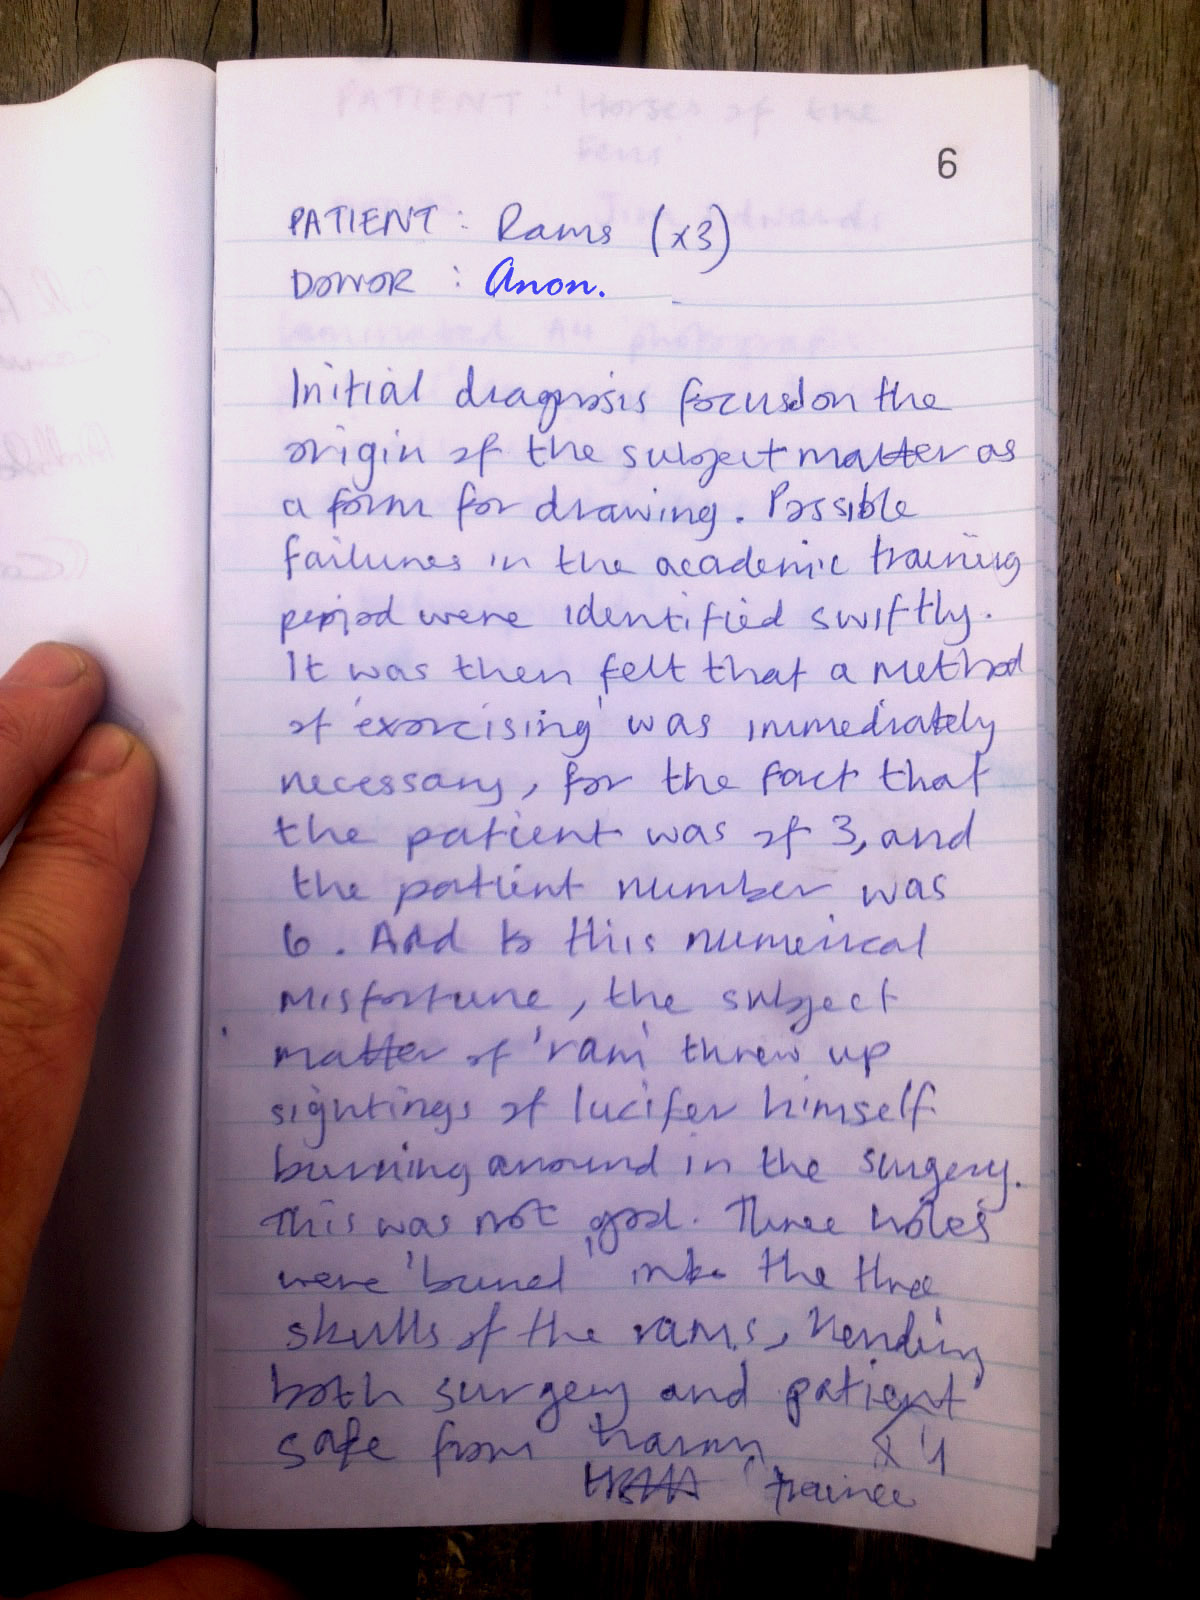 6
PATIENT : Rams (x3)
DONOR : Anon.
Initial diagnosis focused on the
origin of the subject matter as
a form for drawing. Possible
failures in the academic training
period were identified swiftly.
It was then felt that a method
of 'exorcising' was immediately
necessary, for the fact that
the patient was of 3, and
the patient number was
6. Add to this numerical
misfortune, the subject
matter of 'ram' threw up
sightings of lucifer himself
burning around in the surgery.
This was not good. Three holes
were 'burned' into the three
skulls of the rams, rending
both surgery and patient
safe from harm x 1
trainee